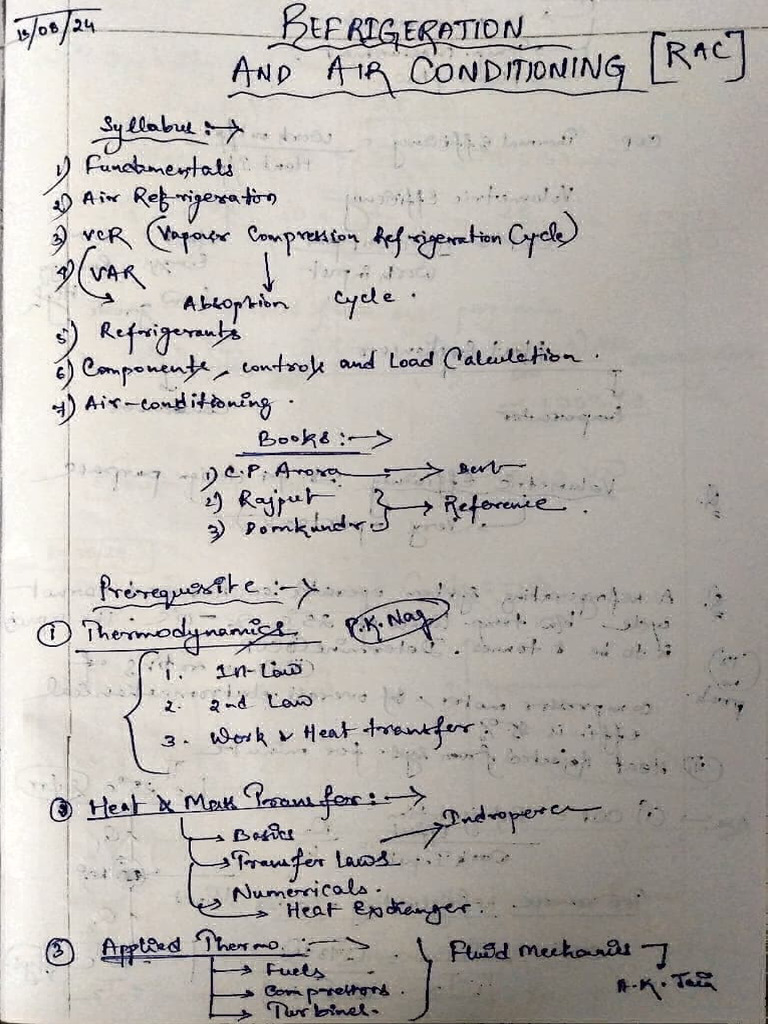 13/08/24
REFRIGERATION
AND AIR CONDITIONING [RAC]
Syllabus :→
1) Fundamentals
2) Air Refrigeration
3) VCR (Vapour Compression Refrigeration Cycle)
4) VAR
Absoption cycle.
5) Refrigerants
6) Components, controls and Load Calculation.
7) Air-conditioning.
Books :→
1) C.P. Arora → Best
2) Rajput
3) Domkundr } → Reference.
Prerequisite :→
① Thermodynamics P.K. Nag
1. 1st Law
2. 2nd Law
3. Work & Heat transfer.
② Heat & Mass Transfer :→
→ Basics → Indropera
→ Transfer Laws
→ Numericals.
→ Heat Exchanger.
③ Applied Thermo. :→ } Fluid Mechanis
→ Fuels
→ Compressors. A.K. Jain
→ Turbines.